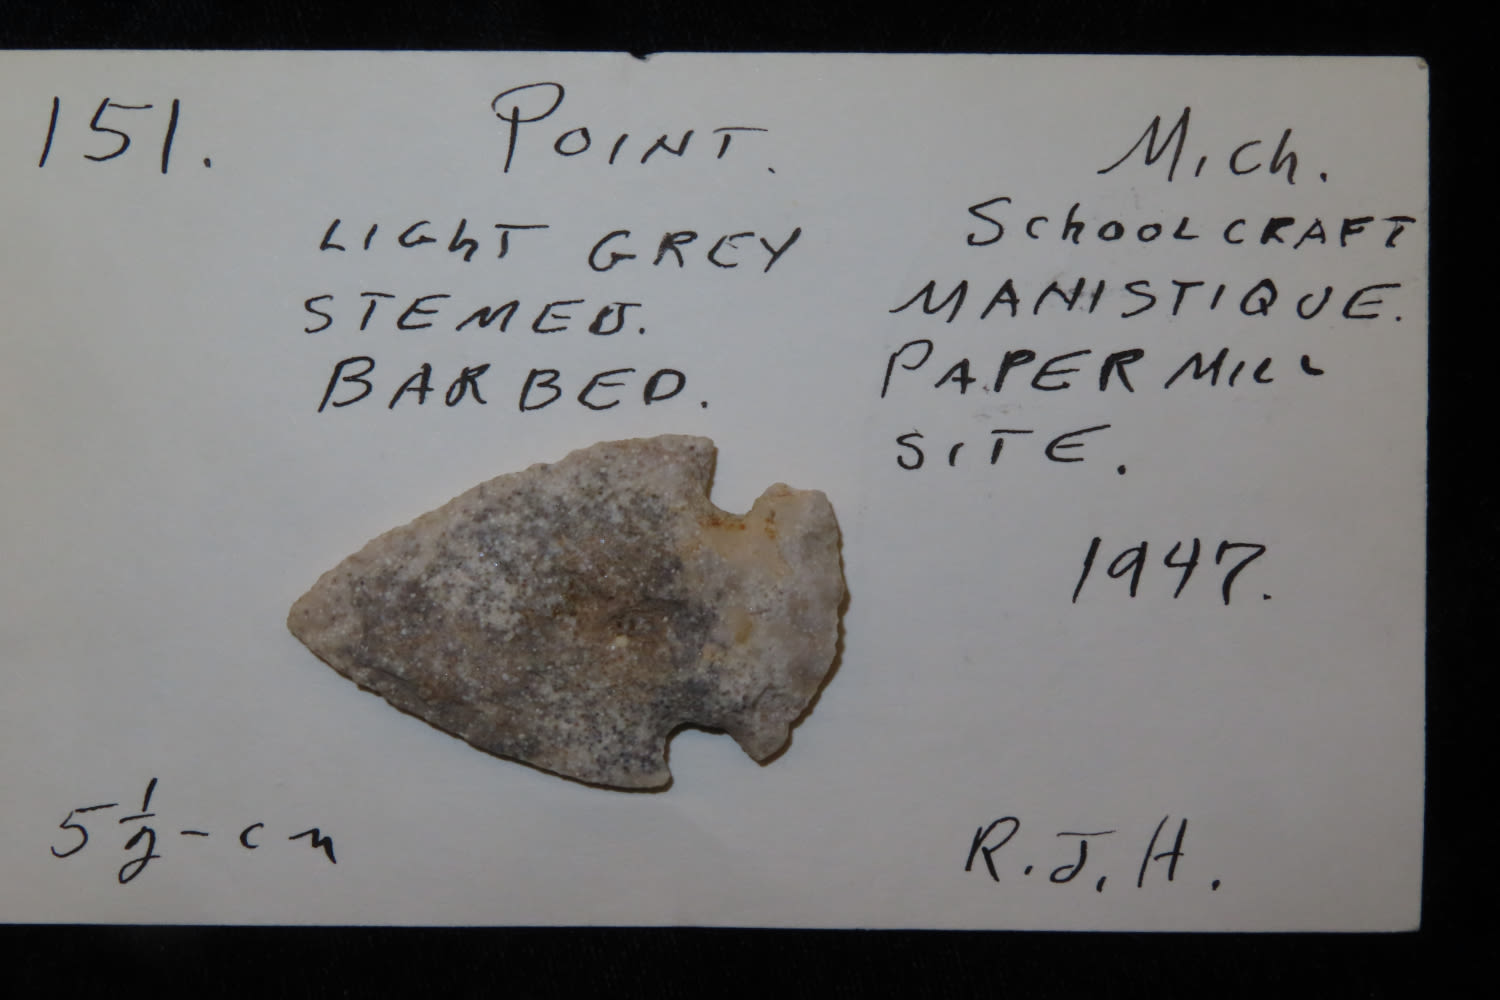 151.
POINT.
LIGhT GREY
STEMED.
BARBED.
Mich.
SchOOLCRAFT
MANISTIQUE.
PAPER MILL
SITE.
1947.
5 1/2 - cm
R.J.H.